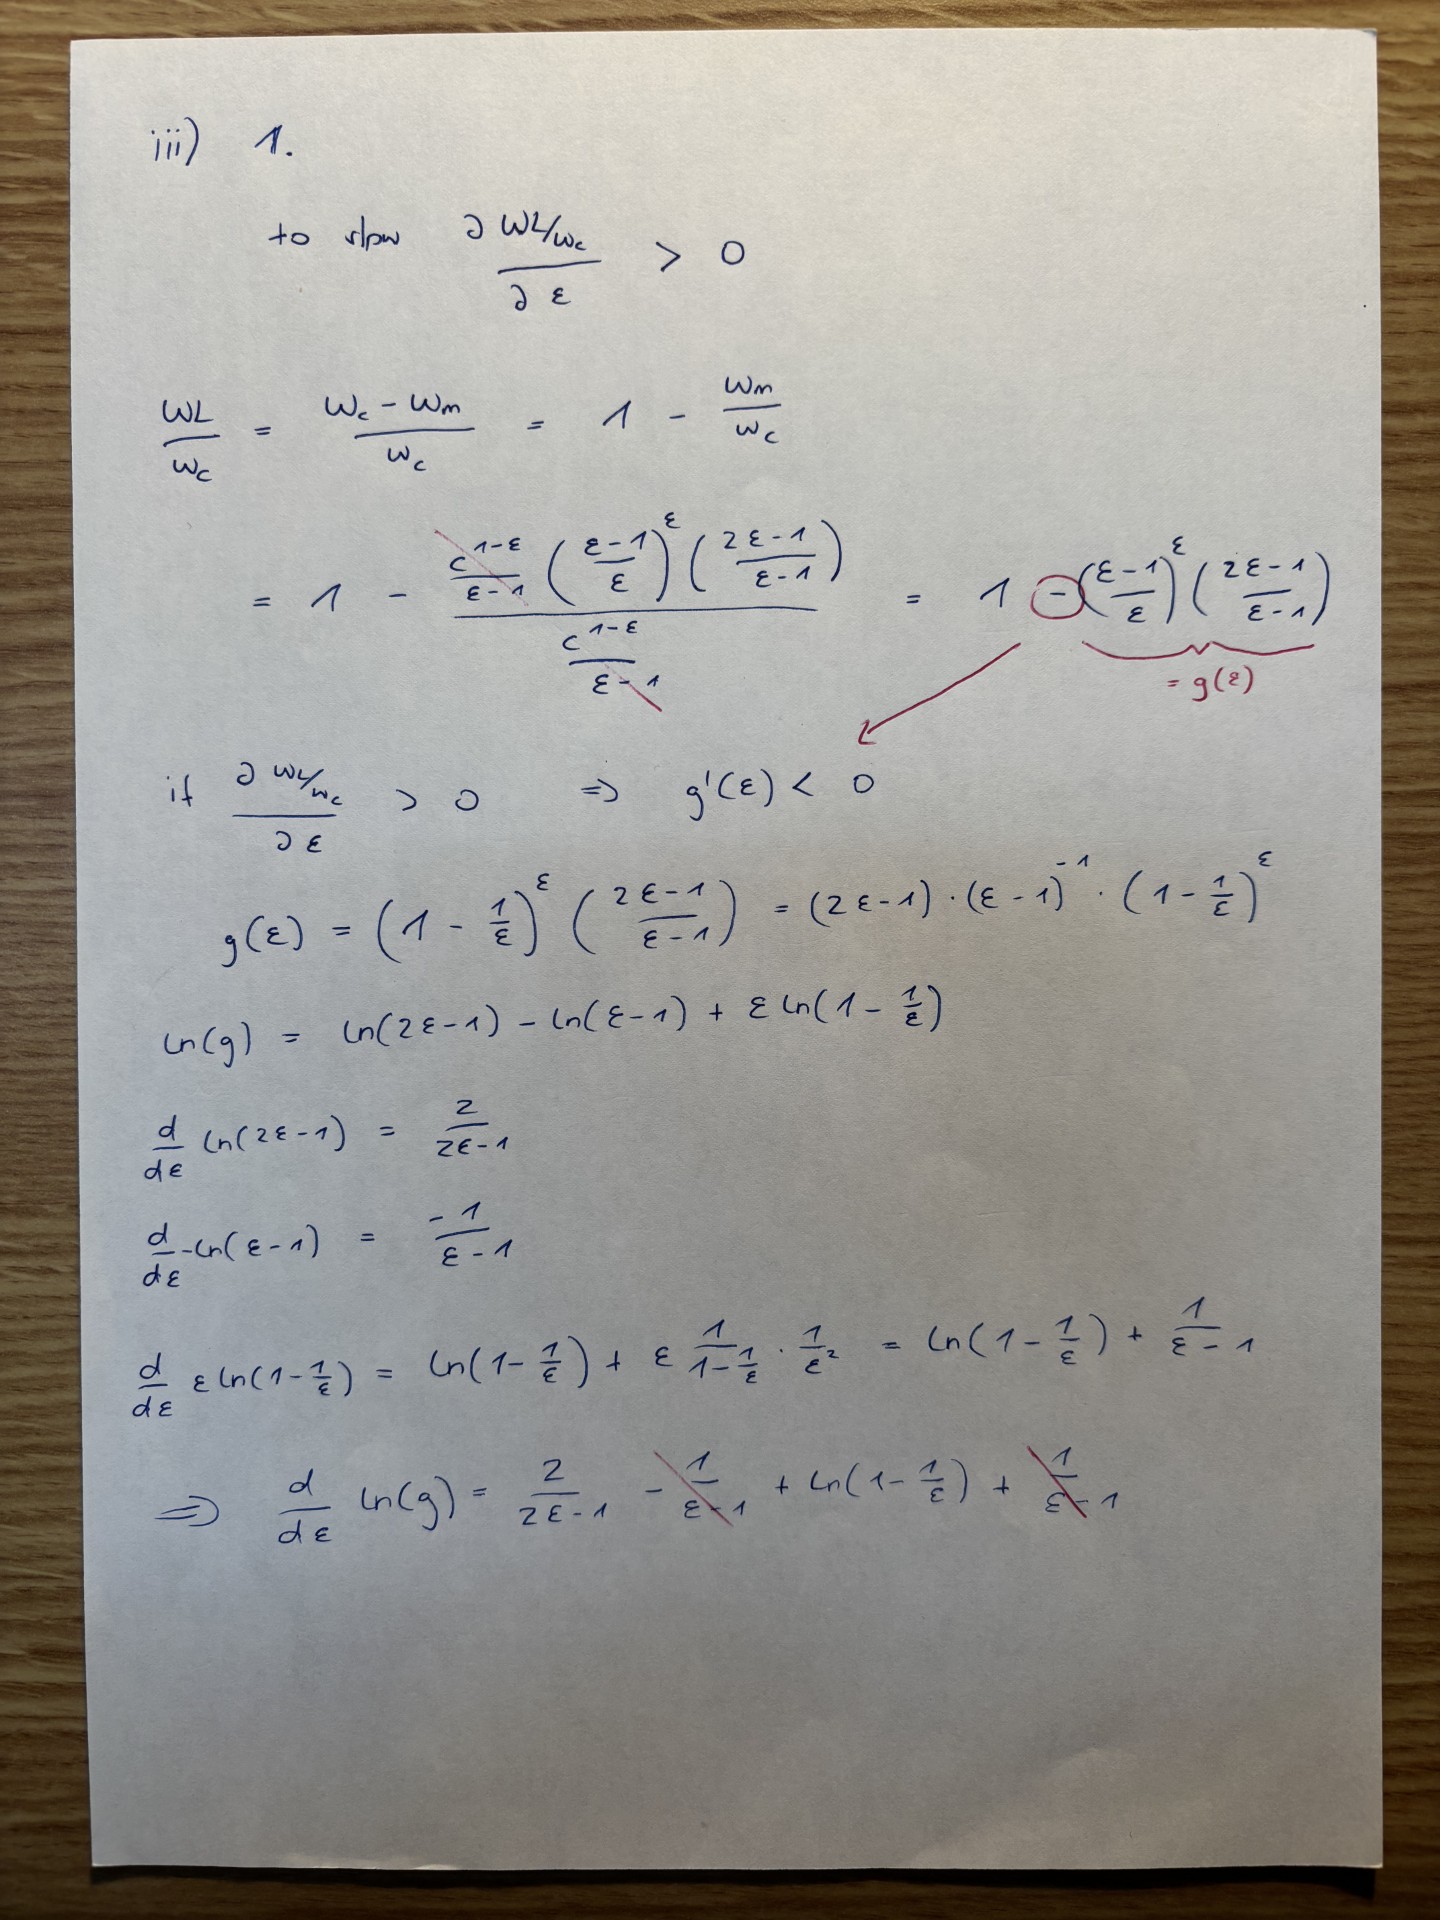 iii) 1.
to show ∂ WL/Wc / ∂ε > 0
WL/Wc = (Wc - Wm)/Wc = 1 - Wm/Wc
= 1 - (c^(1-ε)/(ε-1) ((ε-1)/ε)^ε ((2ε-1)/(ε-1))) / (c^(1-ε)/(ε-1)) = 1 - ((ε-1)/ε)^ε ((2ε-1)/(ε-1))
= g(ε)
if ∂ WL/Wc / ∂ε > 0 => g'(ε) < 0
g(ε) = (1 - 1/ε)^ε ((2ε-1)/(ε-1)) = (2ε-1) · (ε-1)^-1 · (1 - 1/ε)^ε
ln(g) = ln(2ε-1) - ln(ε-1) + ε ln(1 - 1/ε)
d/dε ln(2ε-1) = 2/(2ε-1)
d/dε -ln(ε-1) = -1/(ε-1)
d/dε ε ln(1 - 1/ε) = ln(1 - 1/ε) + ε 1/(1 - 1/ε) · 1/ε² = ln(1 - 1/ε) + 1/(ε-1)
=> d/dε ln(g) = 2/(2ε-1) - 1/(ε-1) + ln(1 - 1/ε) + 1/(ε-1)